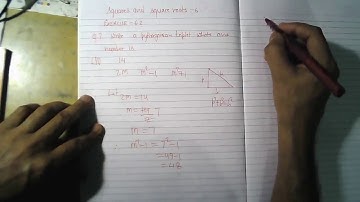 Squares and square roots - 6
Exercise - 6.2
Q.2 Write a pythagorean triplet whose one
number is
(ii) 14
2m m²-1 m²+1
Let
2m = 14
m = 14 7
2
m = 7
∴ m²-1 = 7²-1
= 49-1
= 48